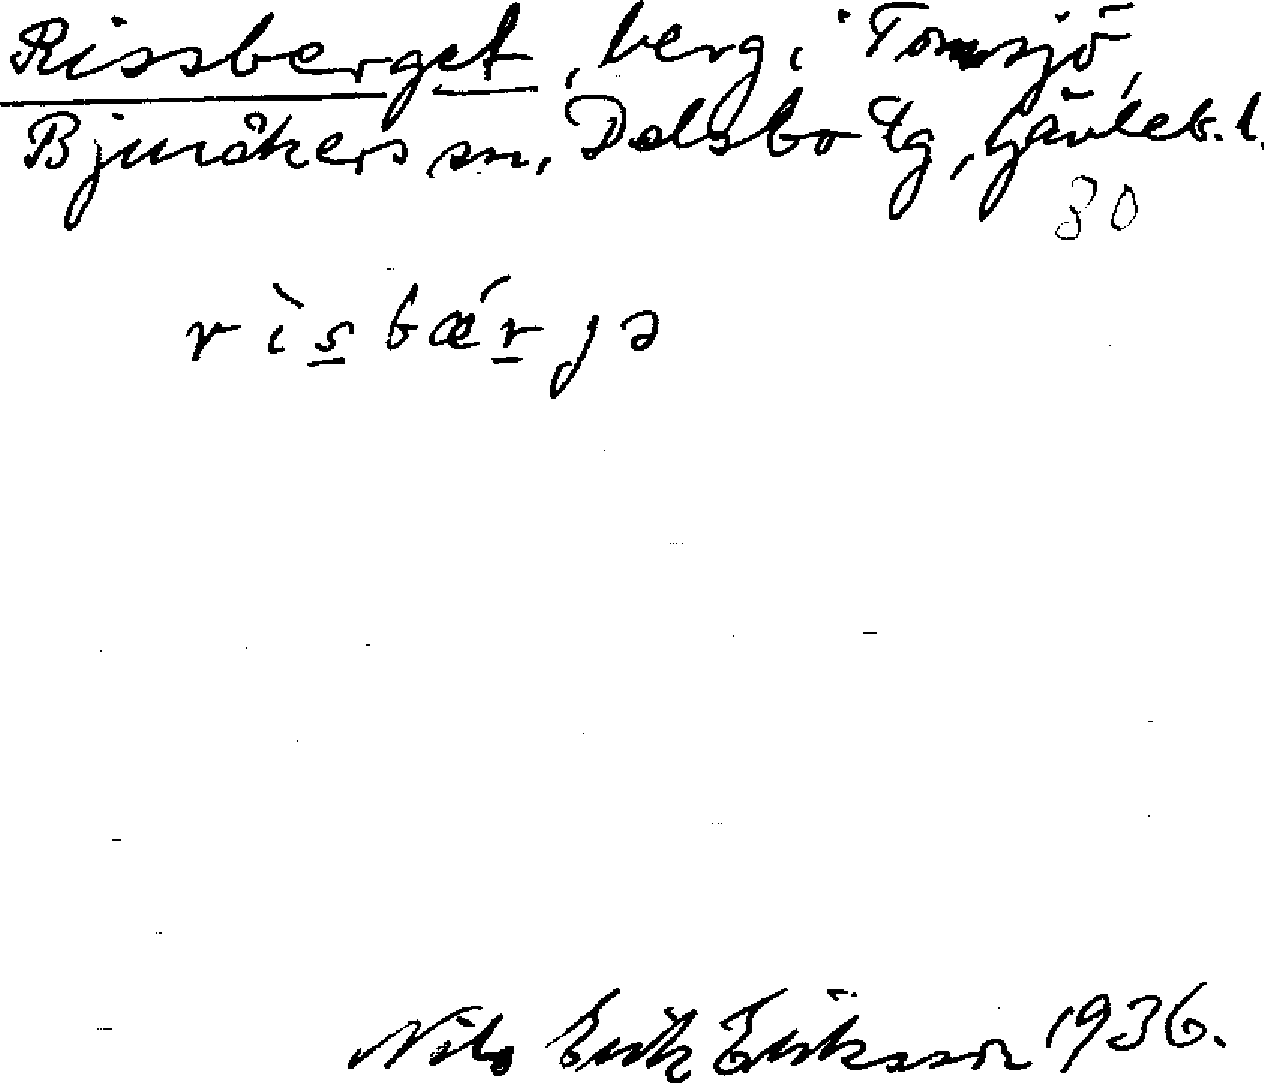 Rissberget, berg i Tomsjö,
Bjuråkers sn, Delsbo tg, Gävleb. l.
30
rìsbǽrjə
Nils Erik Eriksson 1936.